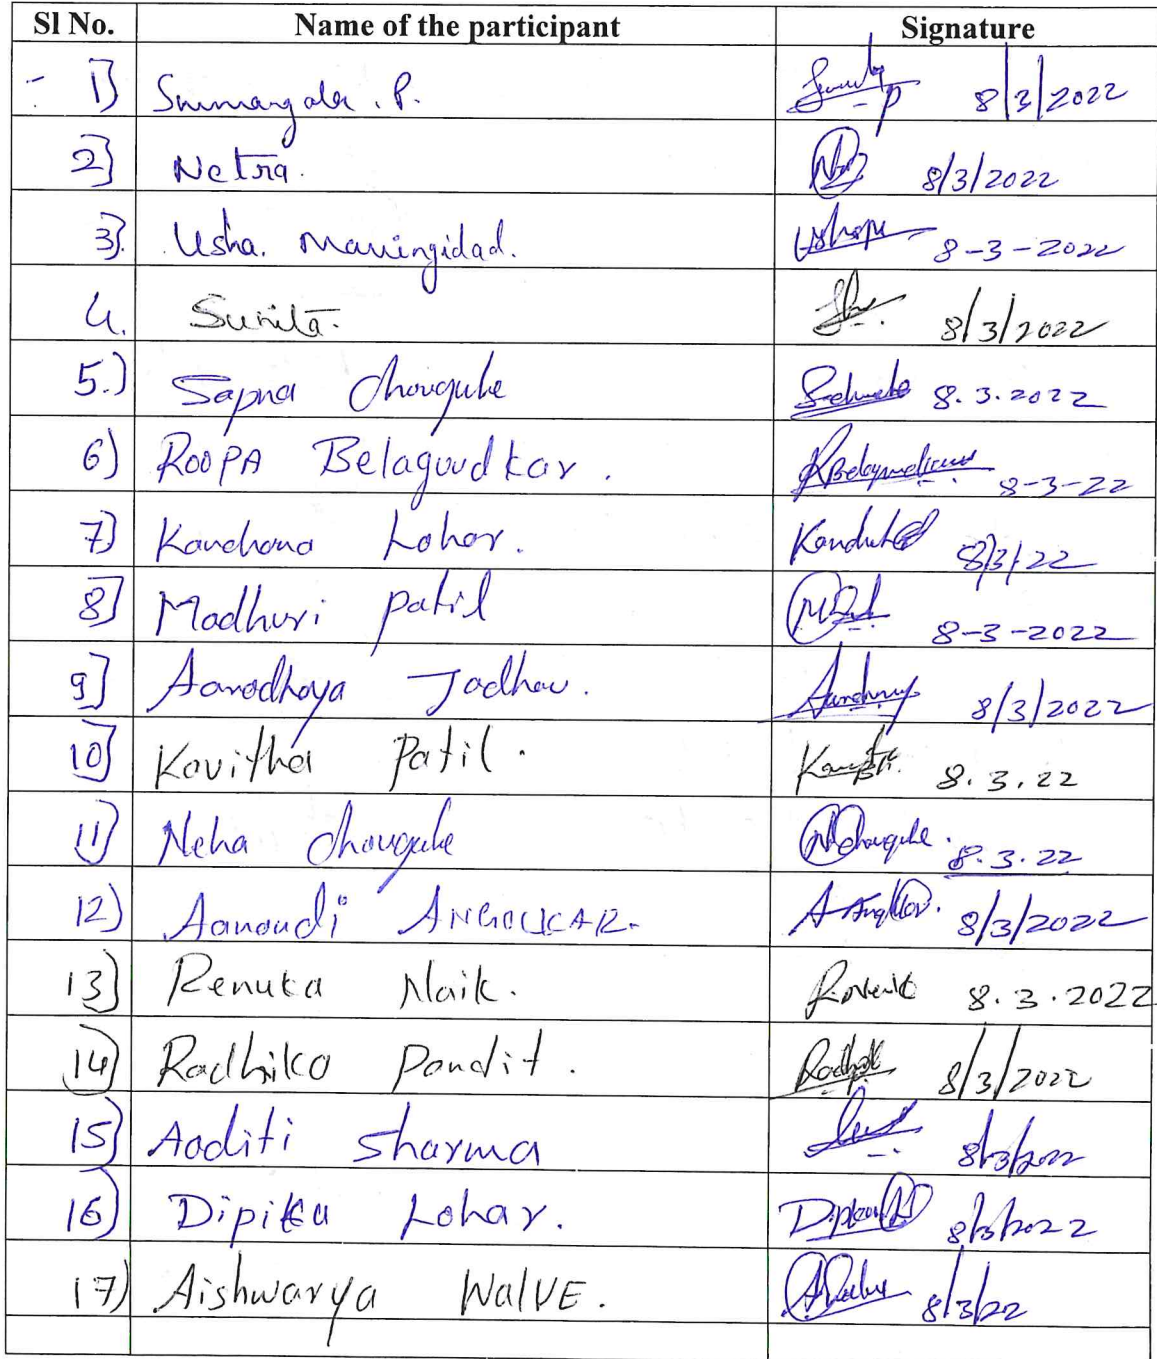 Sl No. Name of the participant Signature
1) Sumangala . P. 8/3/2022
2) Netra. 8/3/2022
3). Usha. Maningidad. 8-3-2022
4. Sunita. 8/3/2022
5.) Sapna Chougule 8.3.2022
6) ROOPA Belagundkar. RBelagundkar 8-3-22
7) Kanchana Lohar. 8/3/22
8) Madhuri patil 8-3-2022
9) Aaradhaya Jadhav. 8/3/2022
10) Kavitha Patil. 8.3.22
11) Neha Chougule NChougule. 8.3.22
12) Aanandi ANGOLKAR. 8/3/2022
13) Renuka Naik. 8.3.2022
14) Radhika Pandit. 8/3/2022
15) Aaditi Sharma 8/3/2022
16) Dipika Lohar. 8/3/2022
17) Aishwarya WalVE. 8/3/22